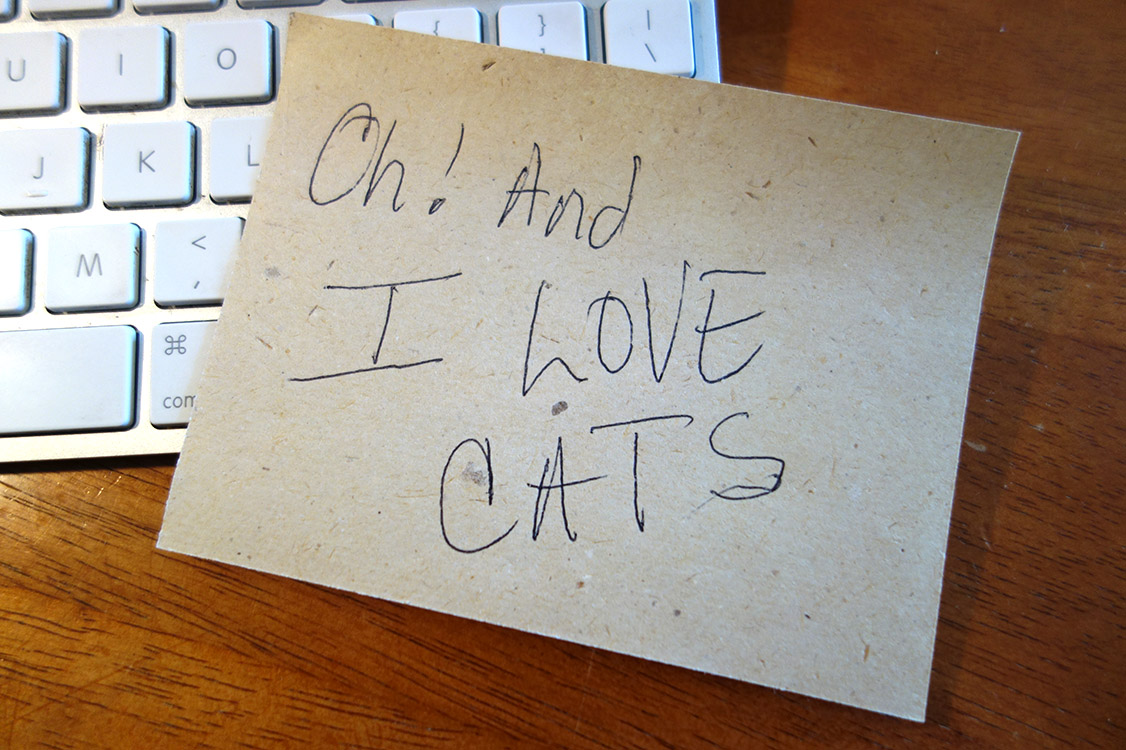 { } |
[ ] \
U I O
J K L
M < ,
⌘
com
Oh! And
I LOVE
CATS